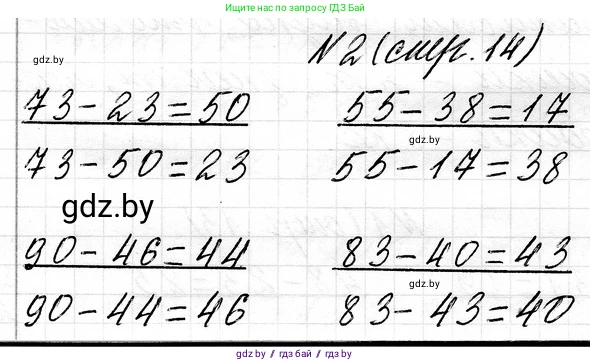 Ищите нас по запросу ГДЗ.БАЙ
gdz.by
№2 (стр. 14)
73 - 23 = 50
55 - 38 = 17
gdz.by
73 - 50 = 23
55 - 17 = 38
gdz.by
90 - 46 = 44
83 - 40 = 43
gdz.by
90 - 44 = 46
83 - 43 = 40
gdz.by / гдз бай / гдз.by